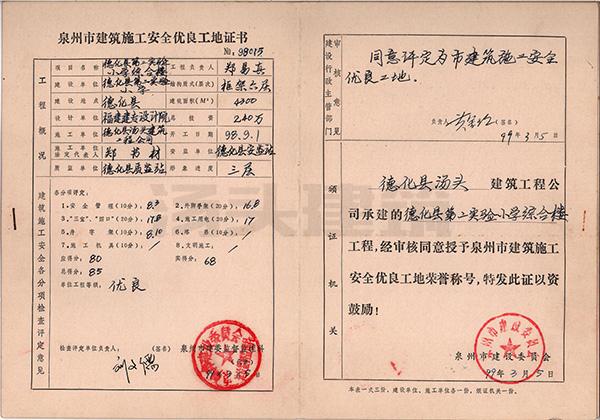 泉州市建筑施工安全优良工地证书
№ 98015
工程概况
项目名称 德化县第二实验小学综合楼 工程负责人 郑易真
建设单位 德化县第二实验小学 结构质式(层次) 框架六层
建设地点 德化县 建筑面积(M²) 4300
设计单位 福建建专设计院 总投资 240万
施工单位 德化县汤头建筑工程公司 开工日期 98.9.1
施工单位法定代表人 郑书材 安监单位 德化县安监站
质监单位 德化县质监站 形象进度 三层
建筑施工安全各分项检查评定意见
各分项评定:
1、安全管理(10分): 8.3 2、外脚手架(20分): 16.8
3、"三宝"、"四口"(20分): 17.8 4、施工用电(20分): 17
5、井字架(10分): 8.10 6、塔吊(分): \
7、施工机具(分): \ 8、文明施工(分): \
应得分: 80 实得分: 68
总得分: 85
单位工程等级: 优良
检查评定单位负责人: (签名) 泉州市建委监督监理科
建设行政主管部门审核意见
同意评定为市建筑施工安全
优良工地。
负责人: (签名)
99年3月5日
颁证机关
德化县汤头 建筑工程公
司承建的 德化县第二实验小学综合楼
工程,经审核同意授予泉州市建筑施工
安全优良工地荣誉称号,特发此证以资
鼓励!
泉州市建设委员会
99年3月5日
本表一式三份,建设单位、施工单位各一份,颁证机关一份。
汤头建筑